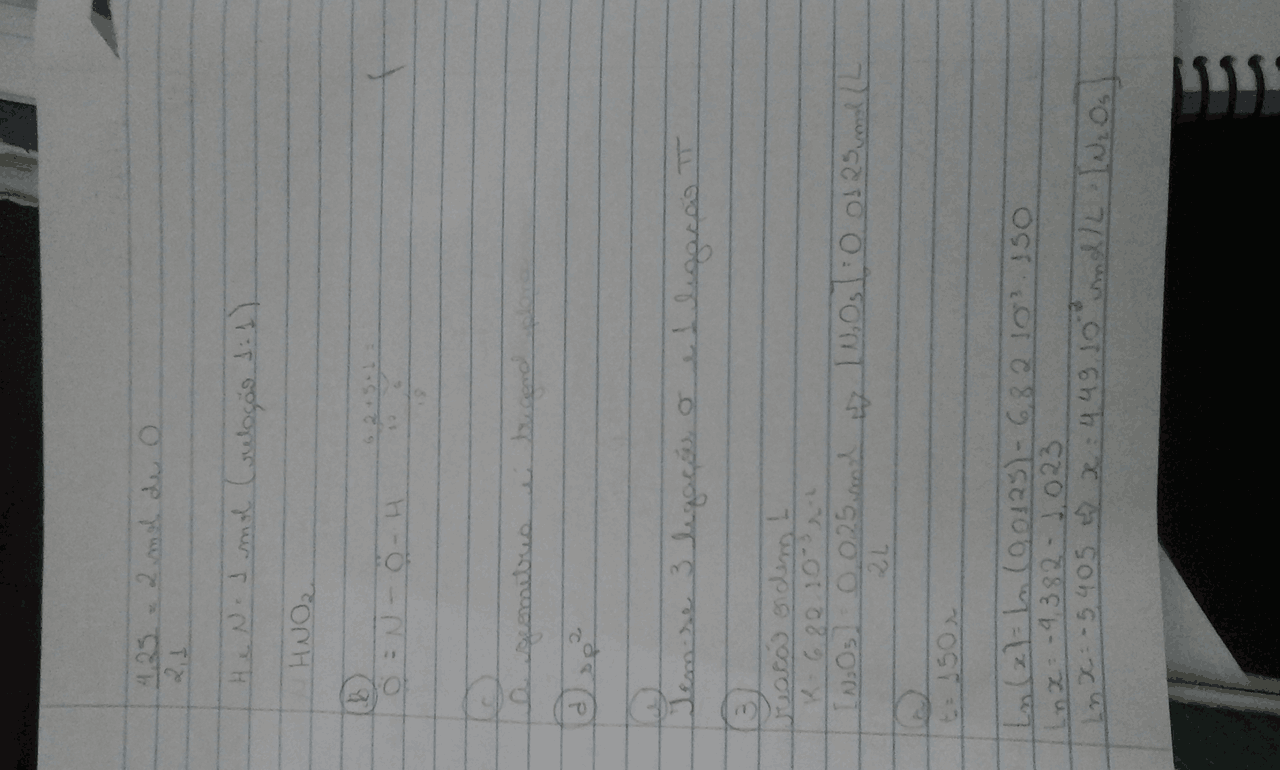 4,25 = 2 mol de O
2,1
H e N = 1 mol (relação 1:1)
HNO2
b) 6.2+5+1=
Ö = N - Ö - H
18
c)
A geometria é trigonal plana
d) sp²
e)
Tem-se 3 ligações σ e 1 ligação π
3)
reação ordem 1
K = 6,82 . 10⁻³ s⁻¹
[N2O5] = 0,025 mol ⇒ [N2O5] = 0,0125 mol/L
2L
a)
t = 150s
ln(x) = ln(0,0125) - 6,82 . 10⁻³ . 150
ln x = -4,382 - 1,023
ln x = -5,405 ⇒ x = 4,49 . 10⁻³ mol/L = [N2O5]